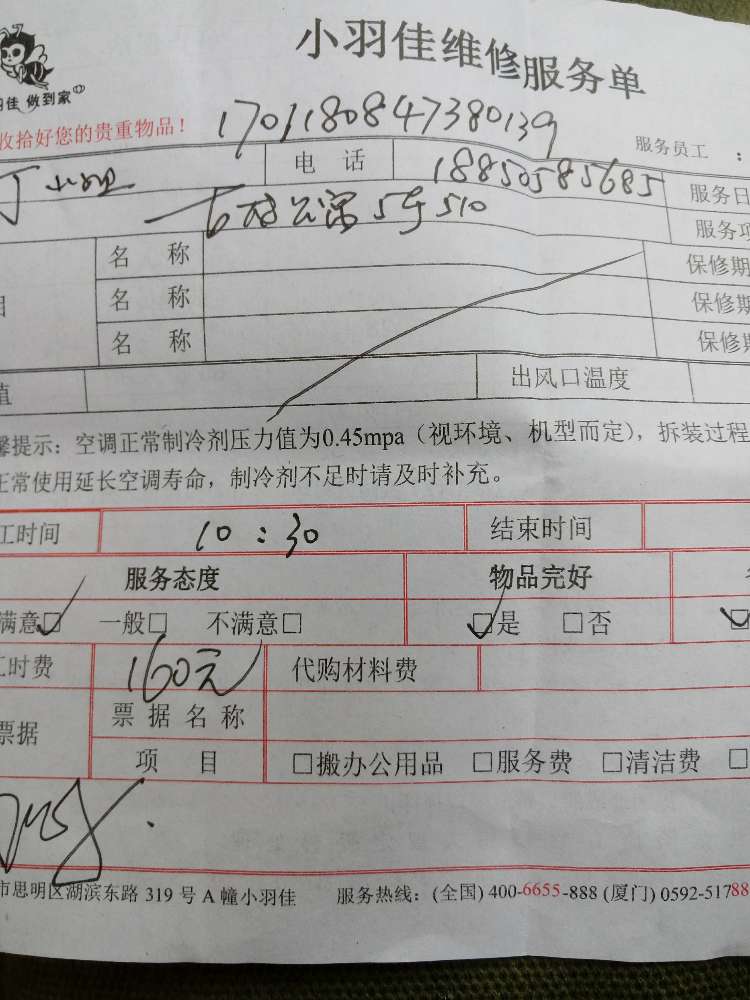 小羽佳维修服务单
羽佳 做到家
收拾好您的贵重物品！
1701180847380139
服务员工：
丁小姐 电话 18850585685 服务日
5号510 服务项
名称 保修期
名称 保修期
名称 保修期
值 出风口温度
馨提示：空调正常制冷剂压力值为0.45mpa（视环境、机型而定），拆装过程
正常使用延长空调寿命，制冷剂不足时请及时补充。
工时间 10：30 结束时间
服务态度 物品完好
满意□ 一般□ 不满意□ □是 □否
工时费 160元 代购材料费
票据 票据名称
项目 □搬办公用品 □服务费 □清洁费 □
市思明区湖滨东路 319 号 A 幢小羽佳 服务热线：(全国) 400-6655-888 (厦门) 0592-51788